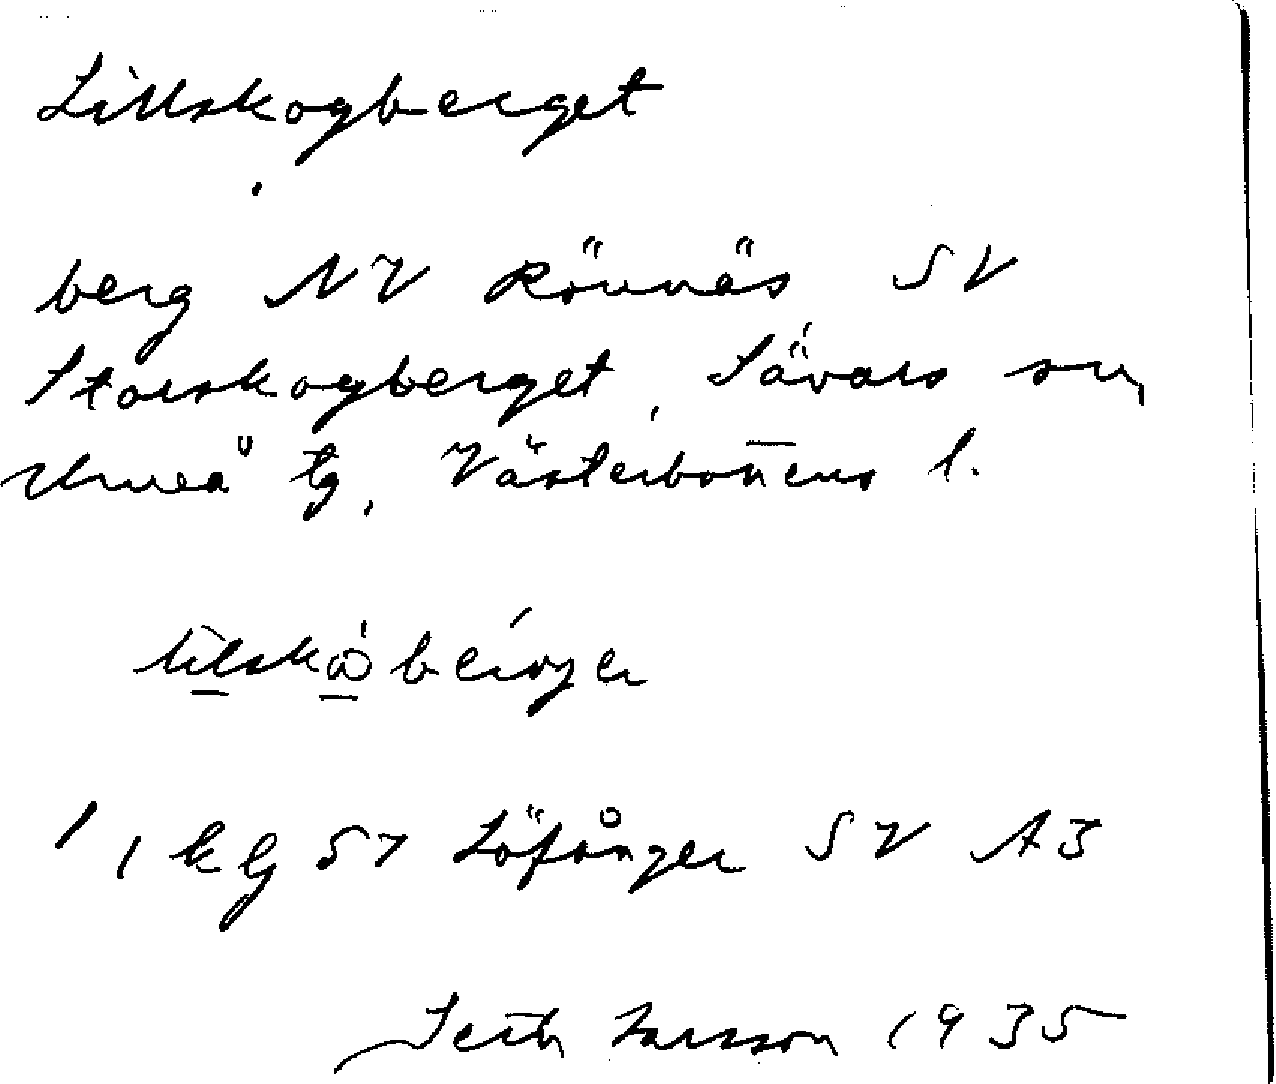 Lillskogberget
berg NV Rönnäs SV
Storskogberget, Sävars sn,
Umeå tg, Västerbottens l.
kg 57 Lövånger SV A3
Seth Larsson 1935